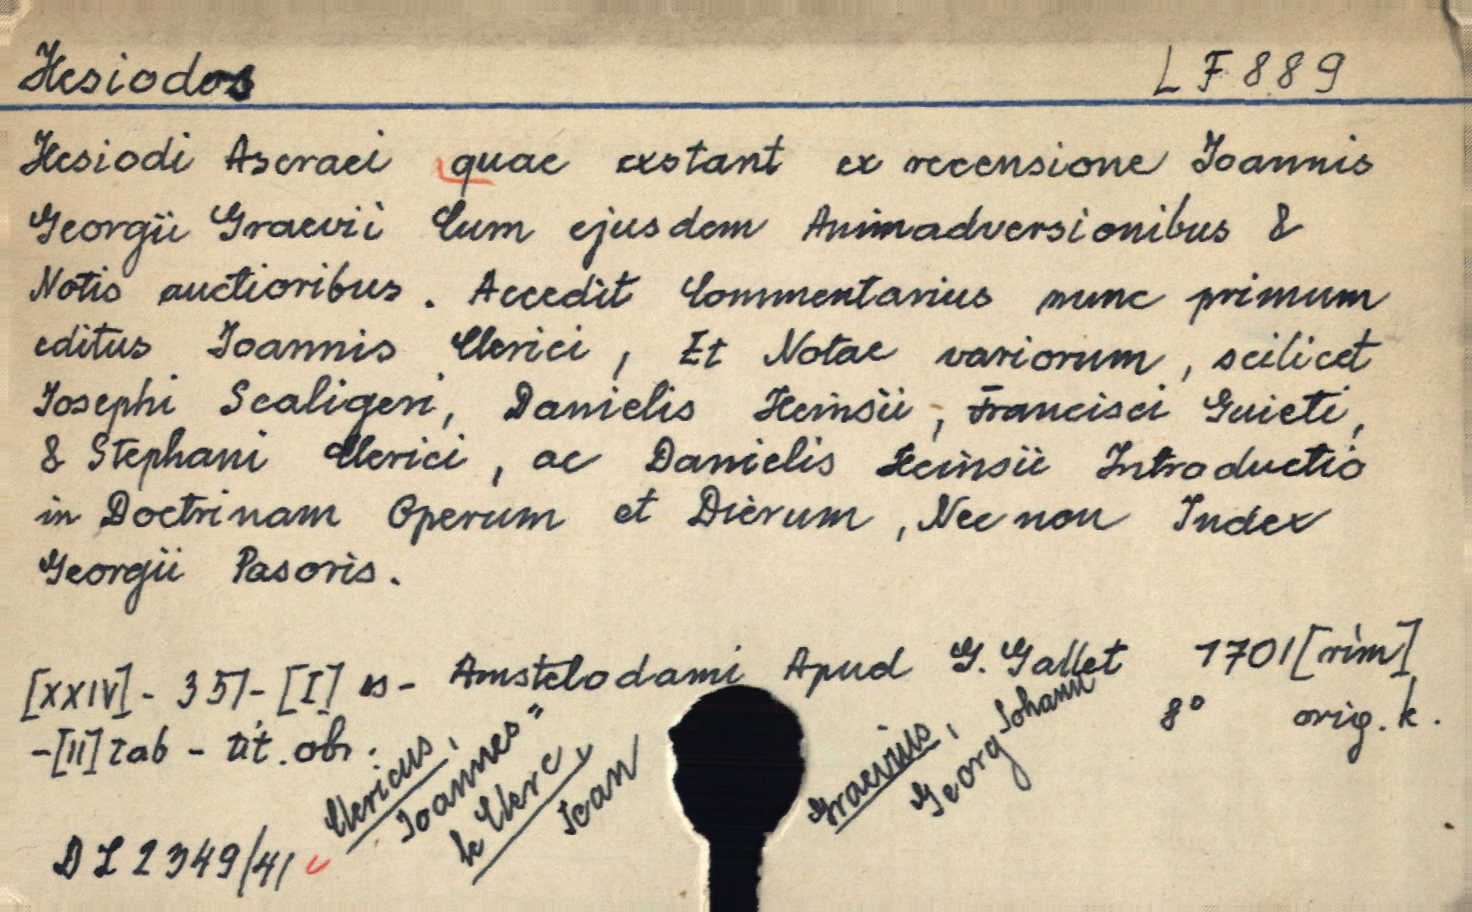 Hesiodos LF 889
Hesiodi Ascraei quae exstant ex recensione Joannis
Georgii Graevii Cum ejusdem Animadversionibus &
Notis auctioribus. Accedit Commentarius nunc primum
editus Joannis Clerici, Et Notae variorum, scilicet
Josephi Scaligeri, Danielis Heinsii, Francisci Guieti,
& Stephani Clerici, ac Danielis Heinsii Introductio
in Doctrinam Operum et Dierum, Nec non Index
Georgii Pasoris.
[XXIV] - 357 - [I] s - Amstelodami Apud G. Gallet 1701 [rim]
-[II] tab - tit. obr. 8° orig. k.
Clericus,
Joannes"
le Clerc,
Jean
Graevius,
Georg Johann
DL 2349/41